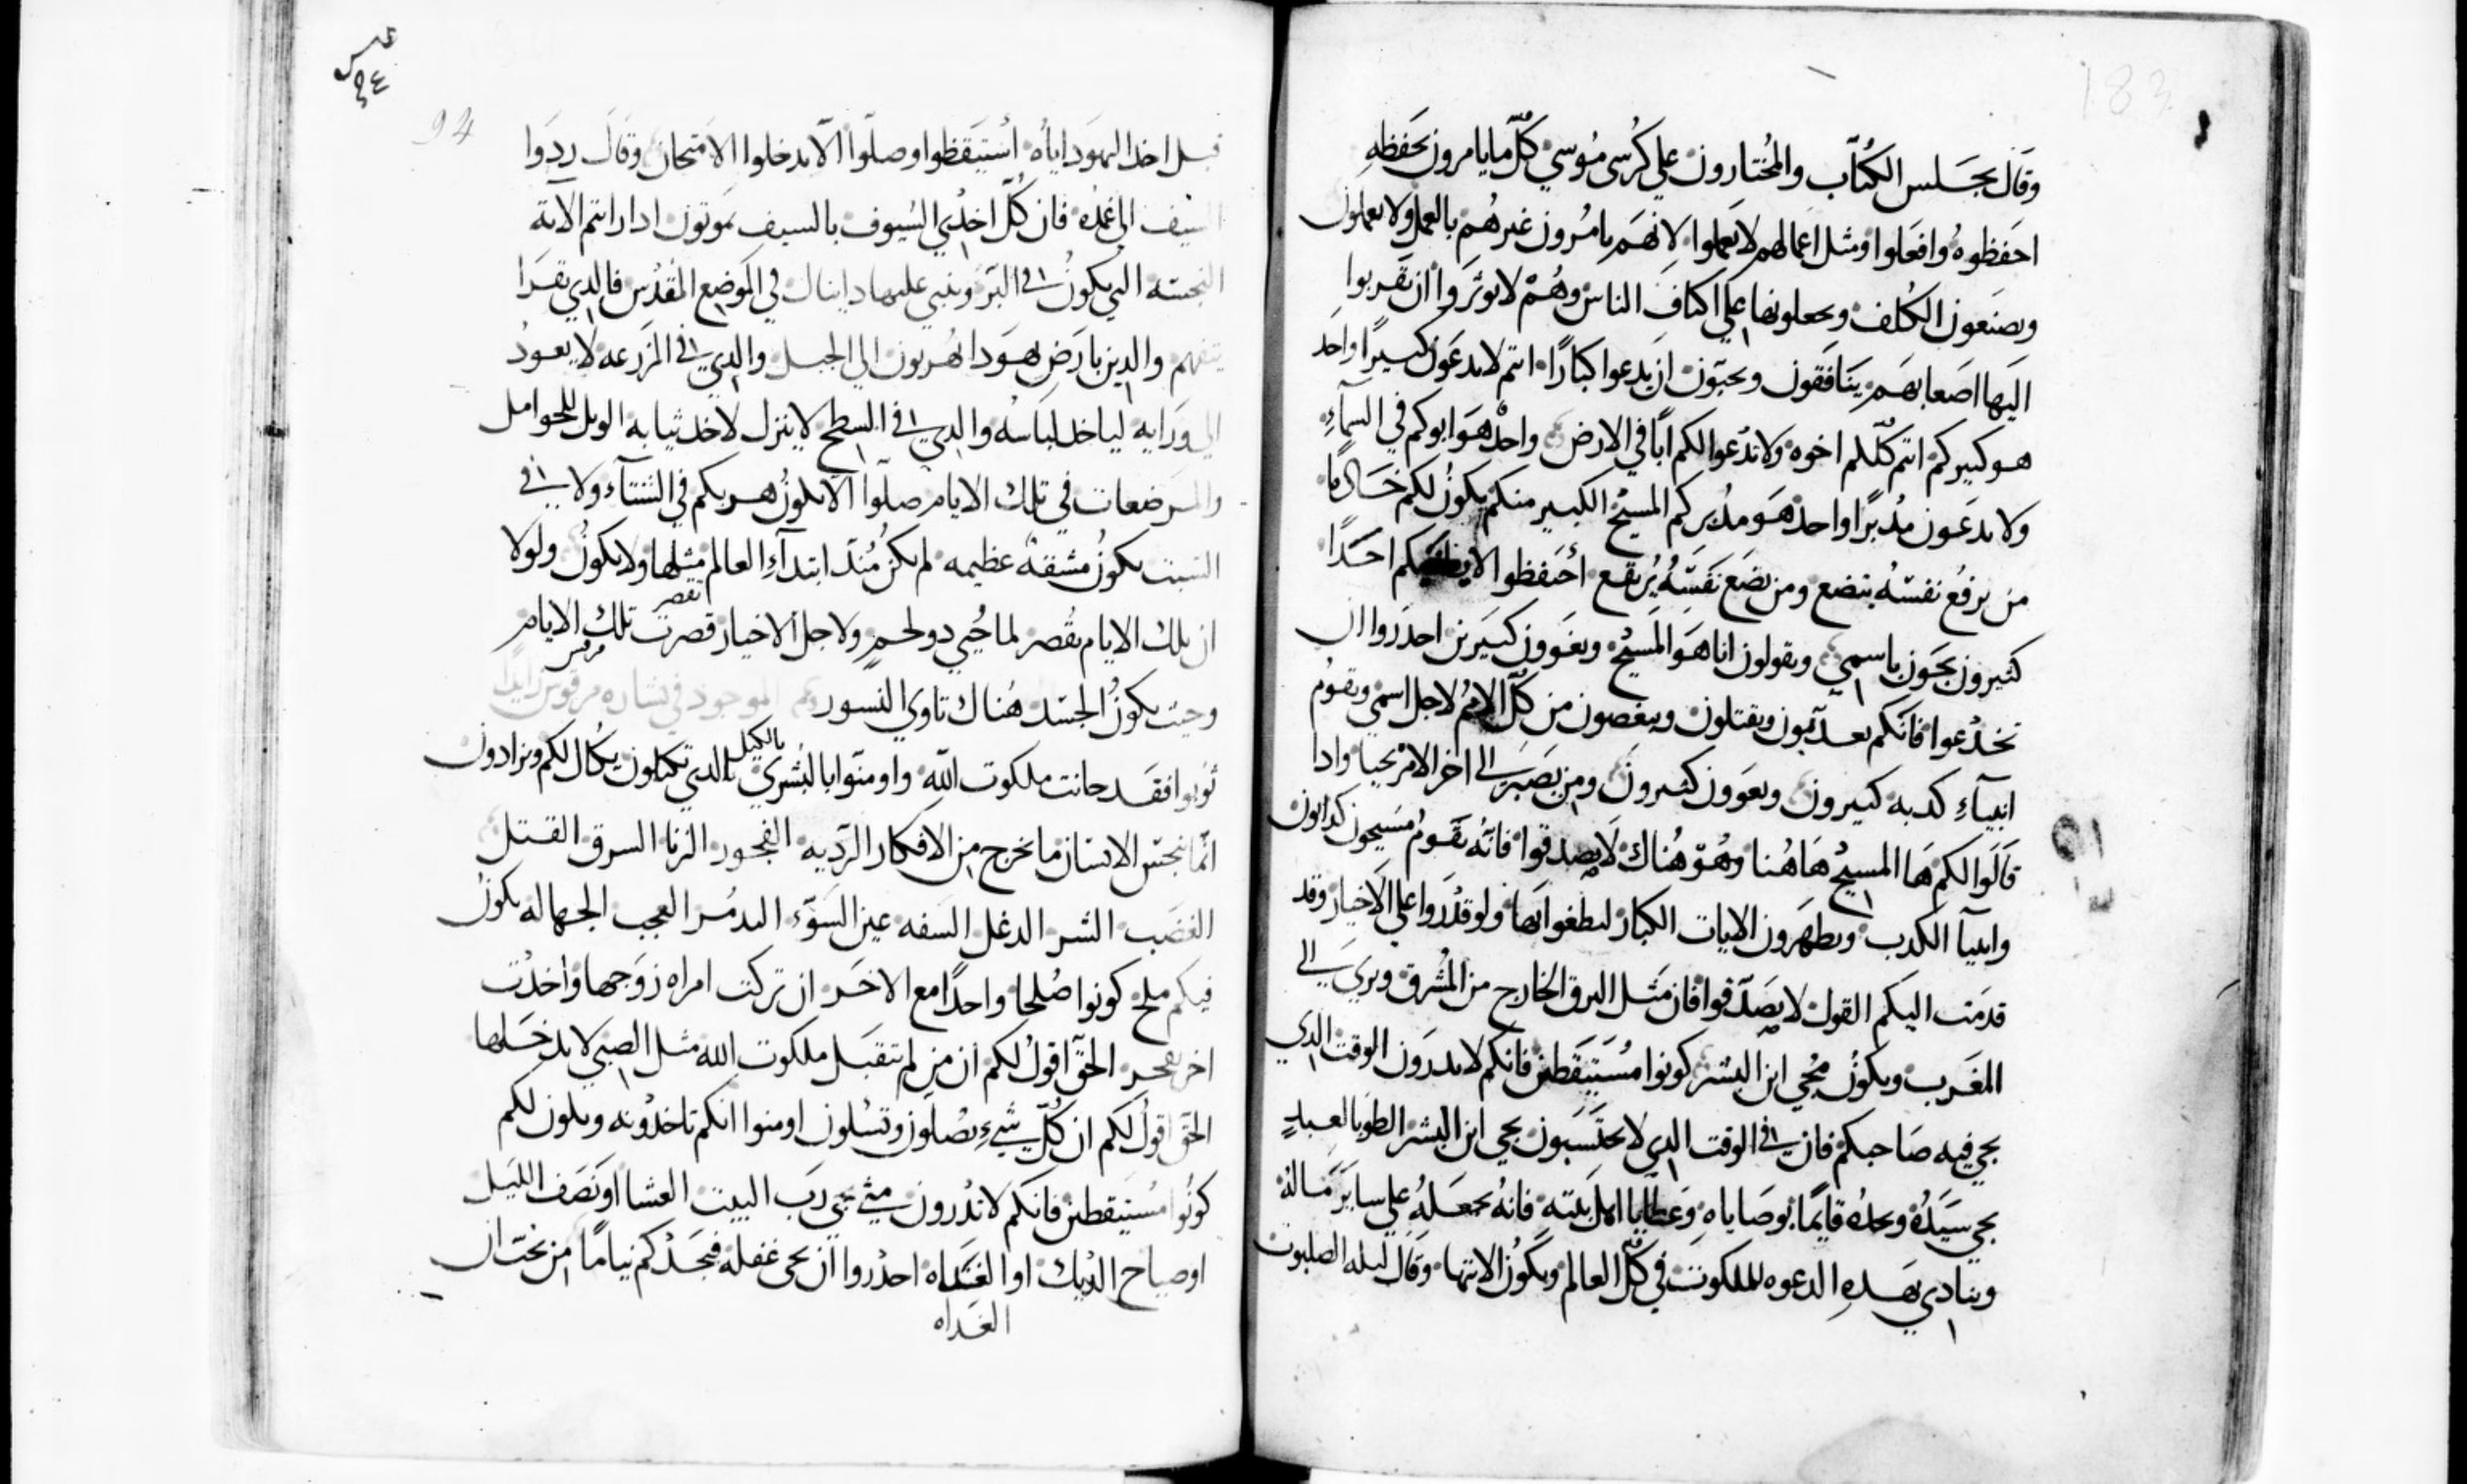 183
وقال يجلس الكتّاب والمختارون علي كرسي موسي كلّ ما يامرون بحفظه
احفظوه وافعلوا ومثل اعمالهم لا تعملوا لانهم يامرون غيرهم بالعمل ولا يعملون
ويصنعون الكلف ويحعلونها علي اكتاف الناس وهم لا يوثروا ان يقربوا
اليها اصعابهم ينافقون ويحبّون ان يدعوا كبارًا انتم لا تدعون كبيرًا واحد
هو كبيركم انتم كلّكم اخوه ولا تدعوا لكم ابًا في الارض واحد هو ابوكم في السماء
ولا تدعون مدبرًا واحد هو مدبركم المسيح الكبير منكم يكون لكم خادمًا
من يرفع نفسه يتضع ومن يضع نفسه يرتفع احفظوا لا يضلكم احدًا
كثيرون يجون باسمي ويقولون انا هو المسيح ويغوون كبيرين احدروا ان
تخدعوا فانكم تعدبون وتقتلون وتبغضون من كلّ الامم لاجل اسمي ويقوم
انبياء كدبه كثيرون ويغوون كثيرون ومن يصبر الي اخر الامر يحيا وادا
قالوا لكم ها المسيح هاهنا وهو هناك لا تصدقوا فانه يقوم مسيحون كدابون
وانبيآ الكدب ويظهرون الايات الكبار ليطغوا بها ولو قدروا علي الاخيار وقد
قدمت اليكم القول لا تصدّقوا فان مثل البرق الخارج من المشرق ويري الي
المغرب ويكون مجي ابن البشر كونوا مستيقظين فانكم لا تدرون الوقت الدي
يجي فيه صاحبكم فان في الوقت الدي لا تحتسبون يجي ابن البشر الطوبا لعبدٍ
يجي سيده ويجده قايمًا بوصاياه وعطايا اهل بيته فانه يجعله علي ساير ماله
وينادي بهده الدعوه للملكوت في كلّ العالم ويكون الانتها وقال ليله الصلبوت
94
قبل اخد اليهود اياه استيقظوا وصلّوا الّا تدخلوا الامتحان وقال ردوا
السيف الي غمده فان كلّ اخدي السيوف بالسيف يموتون ادا رايتم الاية
النجسه التي تكون في البرّ وتنبي عليها دانيال في الموضع المقدس فالدي يقرا
يتفهم والدين بارض يهودا يهربون الي الجبل والدي في المزرعه لا يعود
الي ورايه لياخد لباسه والدي في السطح لا ينزل لاخد ثيابه الويل للحوامل
والمرضعات في تلك الايام صلّوا الّا يكون هربكم في الشتآء ولا في
السبت يكون مشقه عظيمه لم يكن مند ابتدآء العالم مثلها ولا يكون ولولا
ان تلك الايام تقصر لما حيي دو لحم ولاجل الاخيار قصرت تلك الايام
وحيث يكون الجسد هناك تاوي النسور
توبوا فقد حانت ملكوت الله واومنوا بالبشري بالكيل الدي تكتالون يكال لكم وتزادون
انّما ينجس الانسان ما يخرج من الافكار الرديه الفجور الزنا السرق القتل
الغضب الشر الدغل السفه عين السوء التدمر العجب الجهاله يكون
فيكم ملح كونوا صلحا واحدًا مع الاخر ان تركت امراه زوجها واخدت
اخر تفجر الحقّ اقول لكم ان من لم يتقبل ملكوت الله مثل الصبي لا يدخلها
الحقّ اقول لكم ان كلّ شيء تصلون وتسلون اومنوا انكم تاخدونه ويكون لكم
كونوا مستيقظين فانكم لا تدرون متي يجي رب البيت العشا او نصف الليل
او صياح الديك او الغداه احدروا ان يجي غفله فيجدكم نيامًا من يختال
الغداه